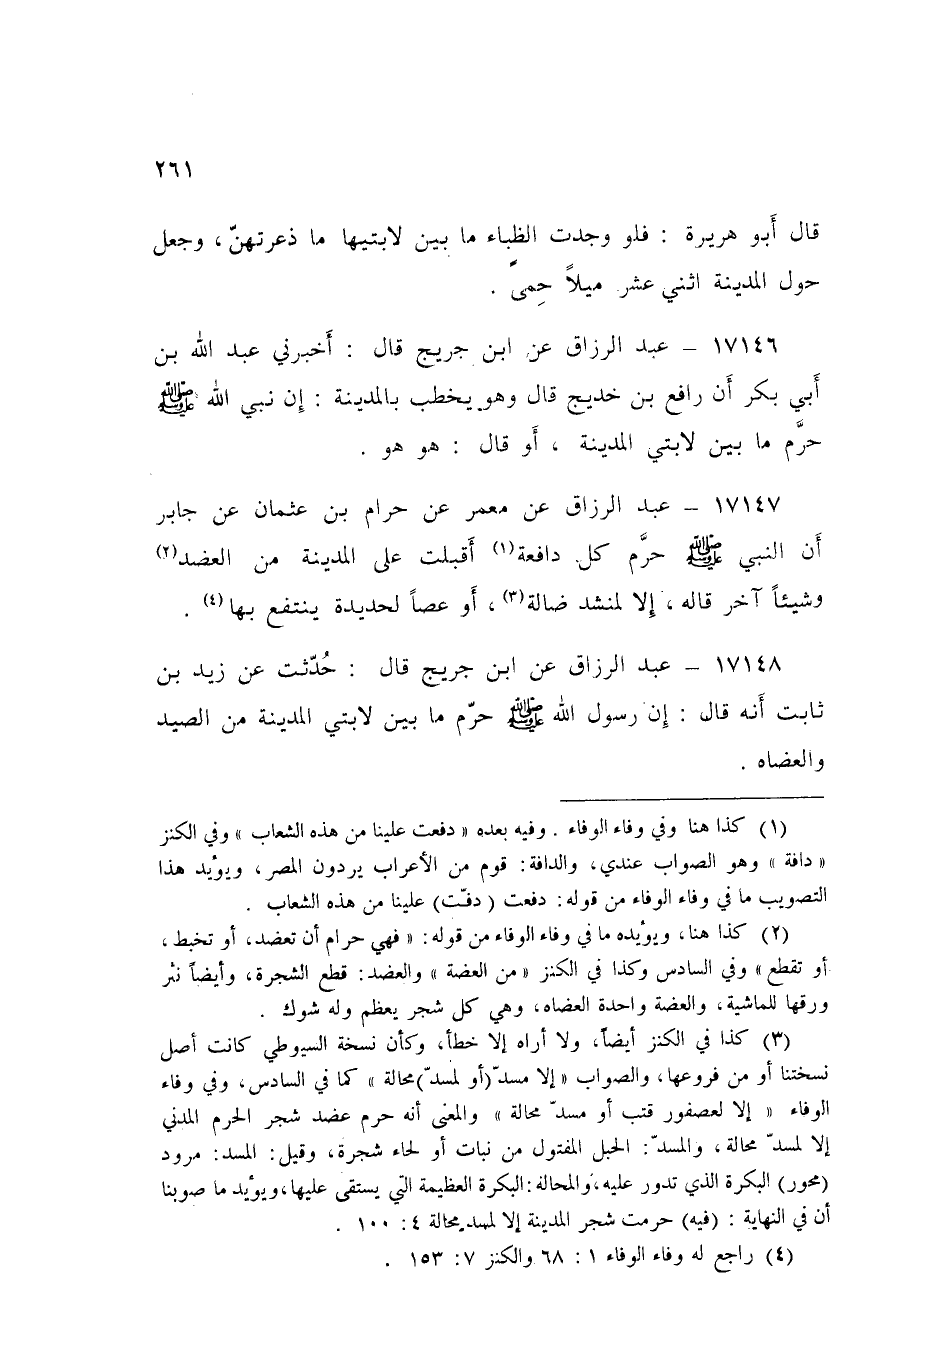 ٢٦١
قال أَبو هريرة : فلو وجدت الظِّباء ما بين لابتيها ما ذعرتهنّ ، وجعل
حول المدينة اثني عشر ميلاً حِمىً .
١٧١٤٦ – عبد الرزاق عن ابن جريج قال : أَخبرني عبد الله بن
أَبي بكر أَن رافع بن خديج قال وهو يخطب بالمدينة : إِن نبي الله ﷺ
حرَّم ما بين لابتي المدينة ، أَو قال : هو هو .
١٧١٤٧ – عبد الرزاق عن معمر عن حرام بن عثمان عن جابر
أَن النبي ﷺ حرَّم كل دافعة(١) أَقبلت على المدينة من العضد(٢)
وشيئاً آخر قاله ، إِلا لمنشد ضالة(٣) ، أَو عصاً لحديدة ينتفع بها(٤) .
١٧١٤٨ – عبد الرزاق عن ابن جريج قال : حُدّثت عن زيد بن
ثابت أَنه قال : إِن رسول الله ﷺ حرّم ما بين لابتي المدينة من الصيد
والعضاه .
(١) كذا هنا وفي وفاء الوفاء . وفيه بعده « دفعت علينا من هذه الشعاب » وفي الكنز
« دافة » وهو الصواب عندي، والدافة: قوم من الأعراب يردون المصر، ويؤيد هذا
التصويب ما في وفاء الوفاء من قوله: دفعت ( دفّت) علينا من هذه الشعاب .
(٢) كذا هنا، ويؤيده ما في وفاء الوفاء من قوله: « فهي حرام أن تعضد، أو تخبط ،
أو تقطع » وفي السادس وكذا في الكنز « من العضة » والعضد: قطع الشجرة، وأيضاً نثر
ورقها للماشية، والعضة واحدة العضاه، وهي كل شجر يعظم وله شوك .
(٣) كذا في الكنز أيضاً، ولا أراه إلا خطأ، وكأن نسخة السيوطي كانت أصل
نسختنا أو من فروعها، والصواب « إلا مسدّ(أو لمسدّ)محالة » كما في السادس، وفي وفاء
الوفاء « إلا لعصفور قتب أو مسدّ محالة » والمعنى أنه حرم عضد شجر الحرم المدني
إلا لمسدّ محالة ، والمسدّ: الحبل المفتول من نبات أو لحاء شجرة، وقيل: المسد: مرود
(محور) البكرة الذي تدور عليه، والمحالة: البكرة العظيمة التي يستقى عليها، ويؤيد ما صوبنا
أن في النهاية : (فيه) حرمت شجر المدينة إلا لمسد محالة ٤: ١٠٠ .
(٤) راجع له وفاء الوفاء ١ : ٦٨ والكنز ٧: ١٥٣ .